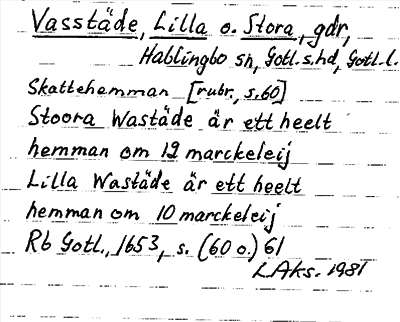 Vasstäde, Lilla o. Stora, gdr,
Hablingbo sn, Gotl. s. hd, Gotl. l.
Skattehemman [rubr., s. 60]
Stoora Wastäde är ett heelt
hemman om 12 marckeleij
Lilla Wastäde är ett heelt
hemman om 10 marckeleij
Rb Gotl., 1653, s. (60 o.) 61
LAks. 1981